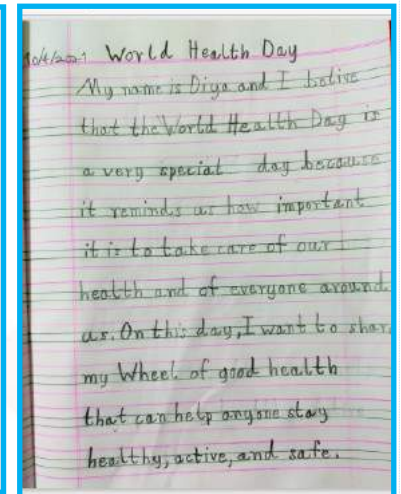 10/4/2021 World Health Day
My name is Diya and I belive
that the World Health Day is
a very special day because
it reminds us how important
it is to take care of our
health and of everyone around
us. On this day, I want to share
my Wheel of good health
that can help anyone stay
healthy, active, and safe.